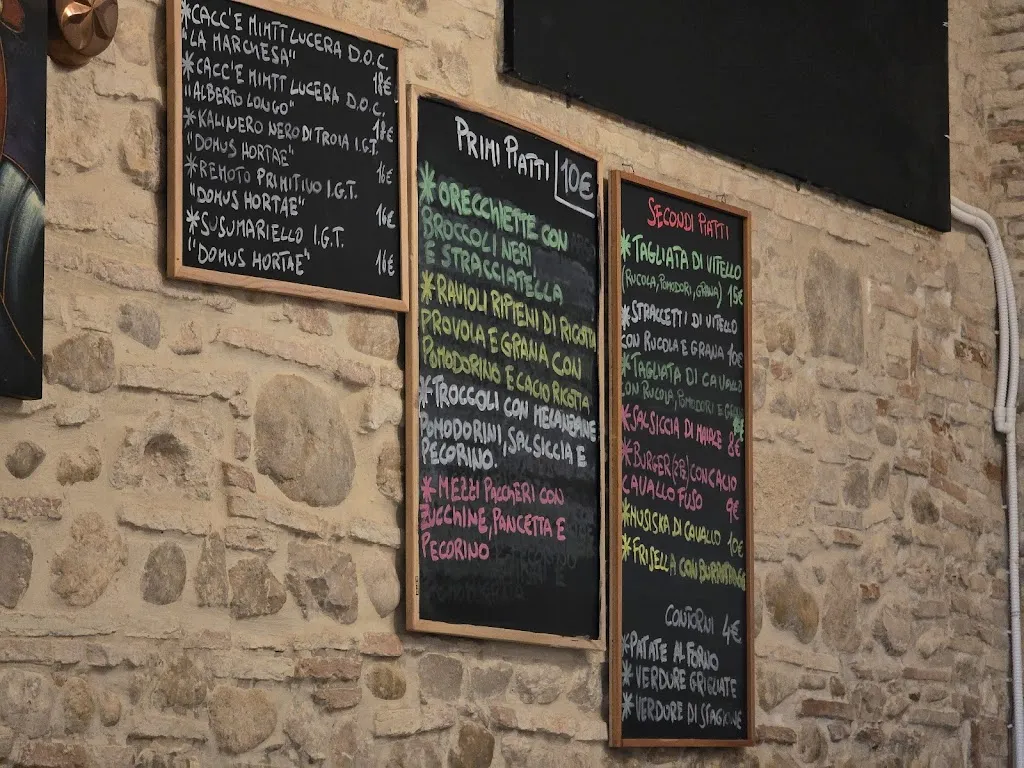 *CACC'E MIMTT LUCERA D.O.C.
"LA MARCHESA" 18€
*CACC'E MIMTT LUCERA D.O.C.
"ALBERTO LONGO" 18€
*KALINERO NERO DI TROIA I.G.T.
"DOMUS HORTAE" 16€
*REMOTO PRIMITIVO I.G.T.
"DOMUS HORTAE" 16€
*SUSUMARIELLO I.G.T.
"DOMUS HORTAE" 16€
PRIMI PIATTI 10€
*ORECCHIETTE CON
BROCCOLI NERI
E STRACCIATELLA
*RAVIOLI RIPIENI DI RICOTTA
PROVOLA E GRANA CON
POMODORINO E CACIO RICOTTA
*TROCCOLI CON MELANZANE
POMODORINI, SALSICCIA E
PECORINO.
*MEZZI PACCHERI CON
ZUCCHINE, PANCETTA E
PECORINO
SECONDI PIATTI
*TAGLIATA DI VITELLO
(RUCOLA, POMODORI, GRANA) 15€
*STRACCETTI DI VITELLO
CON RUCOLA E GRANA 10€
*TAGLIATA DI CAVALLO
CON RUCOLA, POMODORI E GRANA
*SALSICCIA DI MAIALE 8€
*BURGER CON CACIO
CAVALLO FUSO 9€
*MUSISKA DI CAVALLO 10€
*FRISELLA CON
CONTORNI 4€
*PATATE AL FORNO
*VERDURE GRIGLIATE
*VERDURE DI STAGIONE